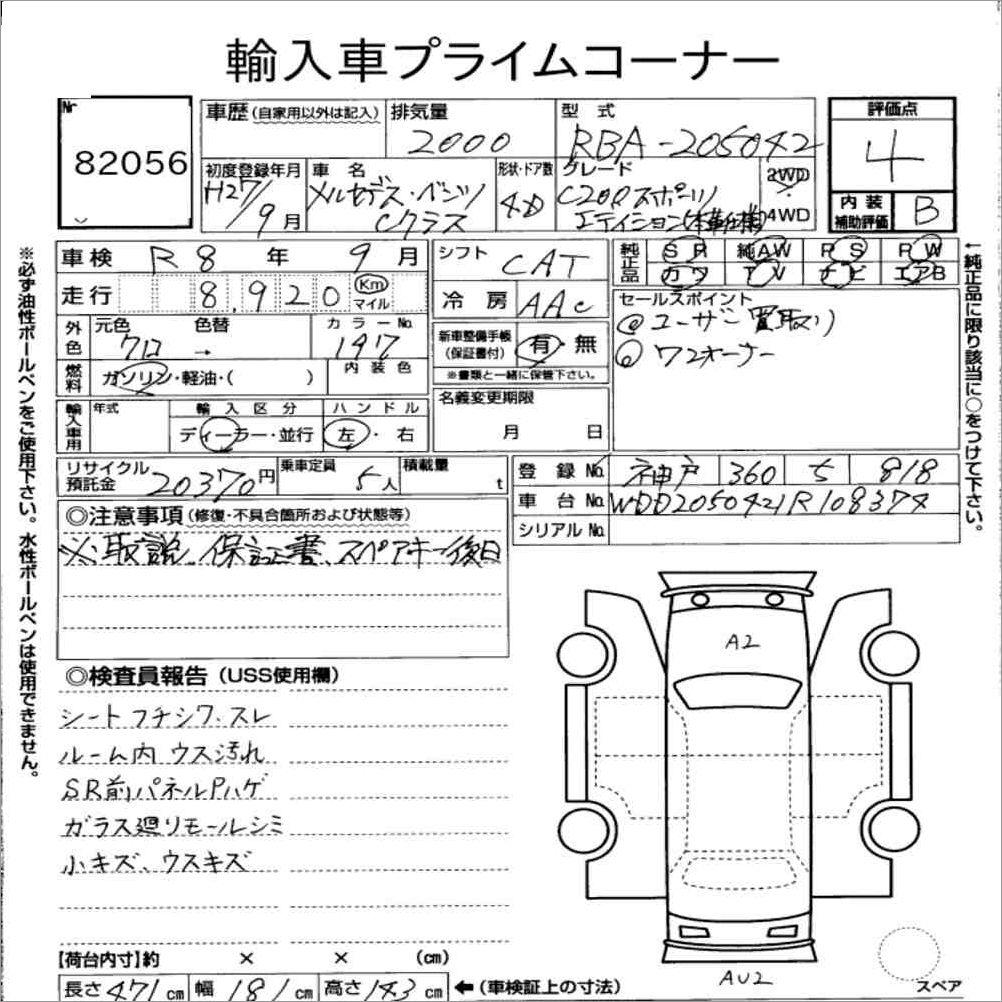 輸入車プライムコーナー
Nr
82056
車歴(自家用以外は記入)
排気量
2000
型 式
RBA-205042
評価点
4
初度登録年月
H27/9月
車 名
メルセデス・ベンツ
Cクラス
形状・ドア数
4D
グレード
C200スポーツ
エディション(本革仕様)
2WD
4WD
内 装
補助評価
B
車 検 R8 年 9 月
走 行 8,920 Km マイル
シフト
CAT
冷 房
AAC
純正品
SR 純AW PS PW
カワ TV ナビ エアB
外色
元色
クロ
色替
→
カラーNo.
197
燃料
ガソリン・軽油・( )
内 装 色
新車整備手帳
(保証書付)
有・無
※書類と一緒に保管下さい。
セールスポイント
◎ユーザー買取り
◎ワンオーナー
輸入車用
年式
輸 入 区 分
ディーラー・並行
ハ ン ド ル
左・右
名義変更期限
月 日
リサイクル
預託金
20370円
乗車定員
5人
積載量
t
登 録 No. 神戸 360 ら 818
車 台 No. WDD2050421R108374
シリアル No.
◎注意事項(修復・不具合箇所および状態等)
※取説、保証書、スペアキー後日
◎検査員報告(USS使用欄)
シートフチシワ、スレ
ルーム内 ウス汚れ
SR前パネルPハゲ
ガラス廻りモールシミ
小キズ、ウスキズ
A2
AU2
スペア
【荷台内寸】約 × × (cm)
長さ 471 cm 幅 181 cm 高さ 143 cm ←(車検証上の寸法)
※必ず油性ボールペンをご使用下さい。水性ボールペンは使用できません。
←純正品に限り該当に○をつけて下さい。